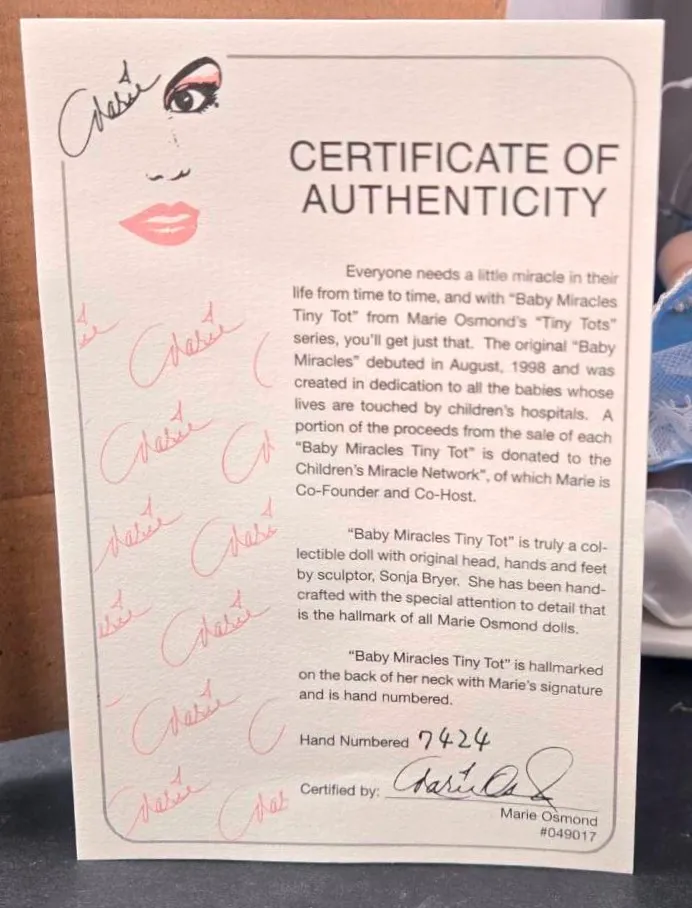 Marie
CERTIFICATE OF
AUTHENTICITY
Everyone needs a little miracle in their
life from time to time, and with “Baby Miracles
Tiny Tot” from Marie Osmond's “Tiny Tots”
series, you'll get just that. The original “Baby
Miracles” debuted in August, 1998 and was
created in dedication to all the babies whose
lives are touched by children's hospitals. A
portion of the proceeds from the sale of each
“Baby Miracles Tiny Tot” is donated to the
Children's Miracle Network”, of which Marie is
Co-Founder and Co-Host.
“Baby Miracles Tiny Tot” is truly a col-
lectible doll with original head, hands and feet
by sculptor, Sonja Bryer. She has been hand-
crafted with the special attention to detail that
is the hallmark of all Marie Osmond dolls.
“Baby Miracles Tiny Tot” is hallmarked
on the back of her neck with Marie's signature
and is hand numbered.
Hand Numbered 7424
Certified by: Marie Os
Marie Osmond
#049017
Marie
Marie
Marie
Marie
Marie
Marie
Marie